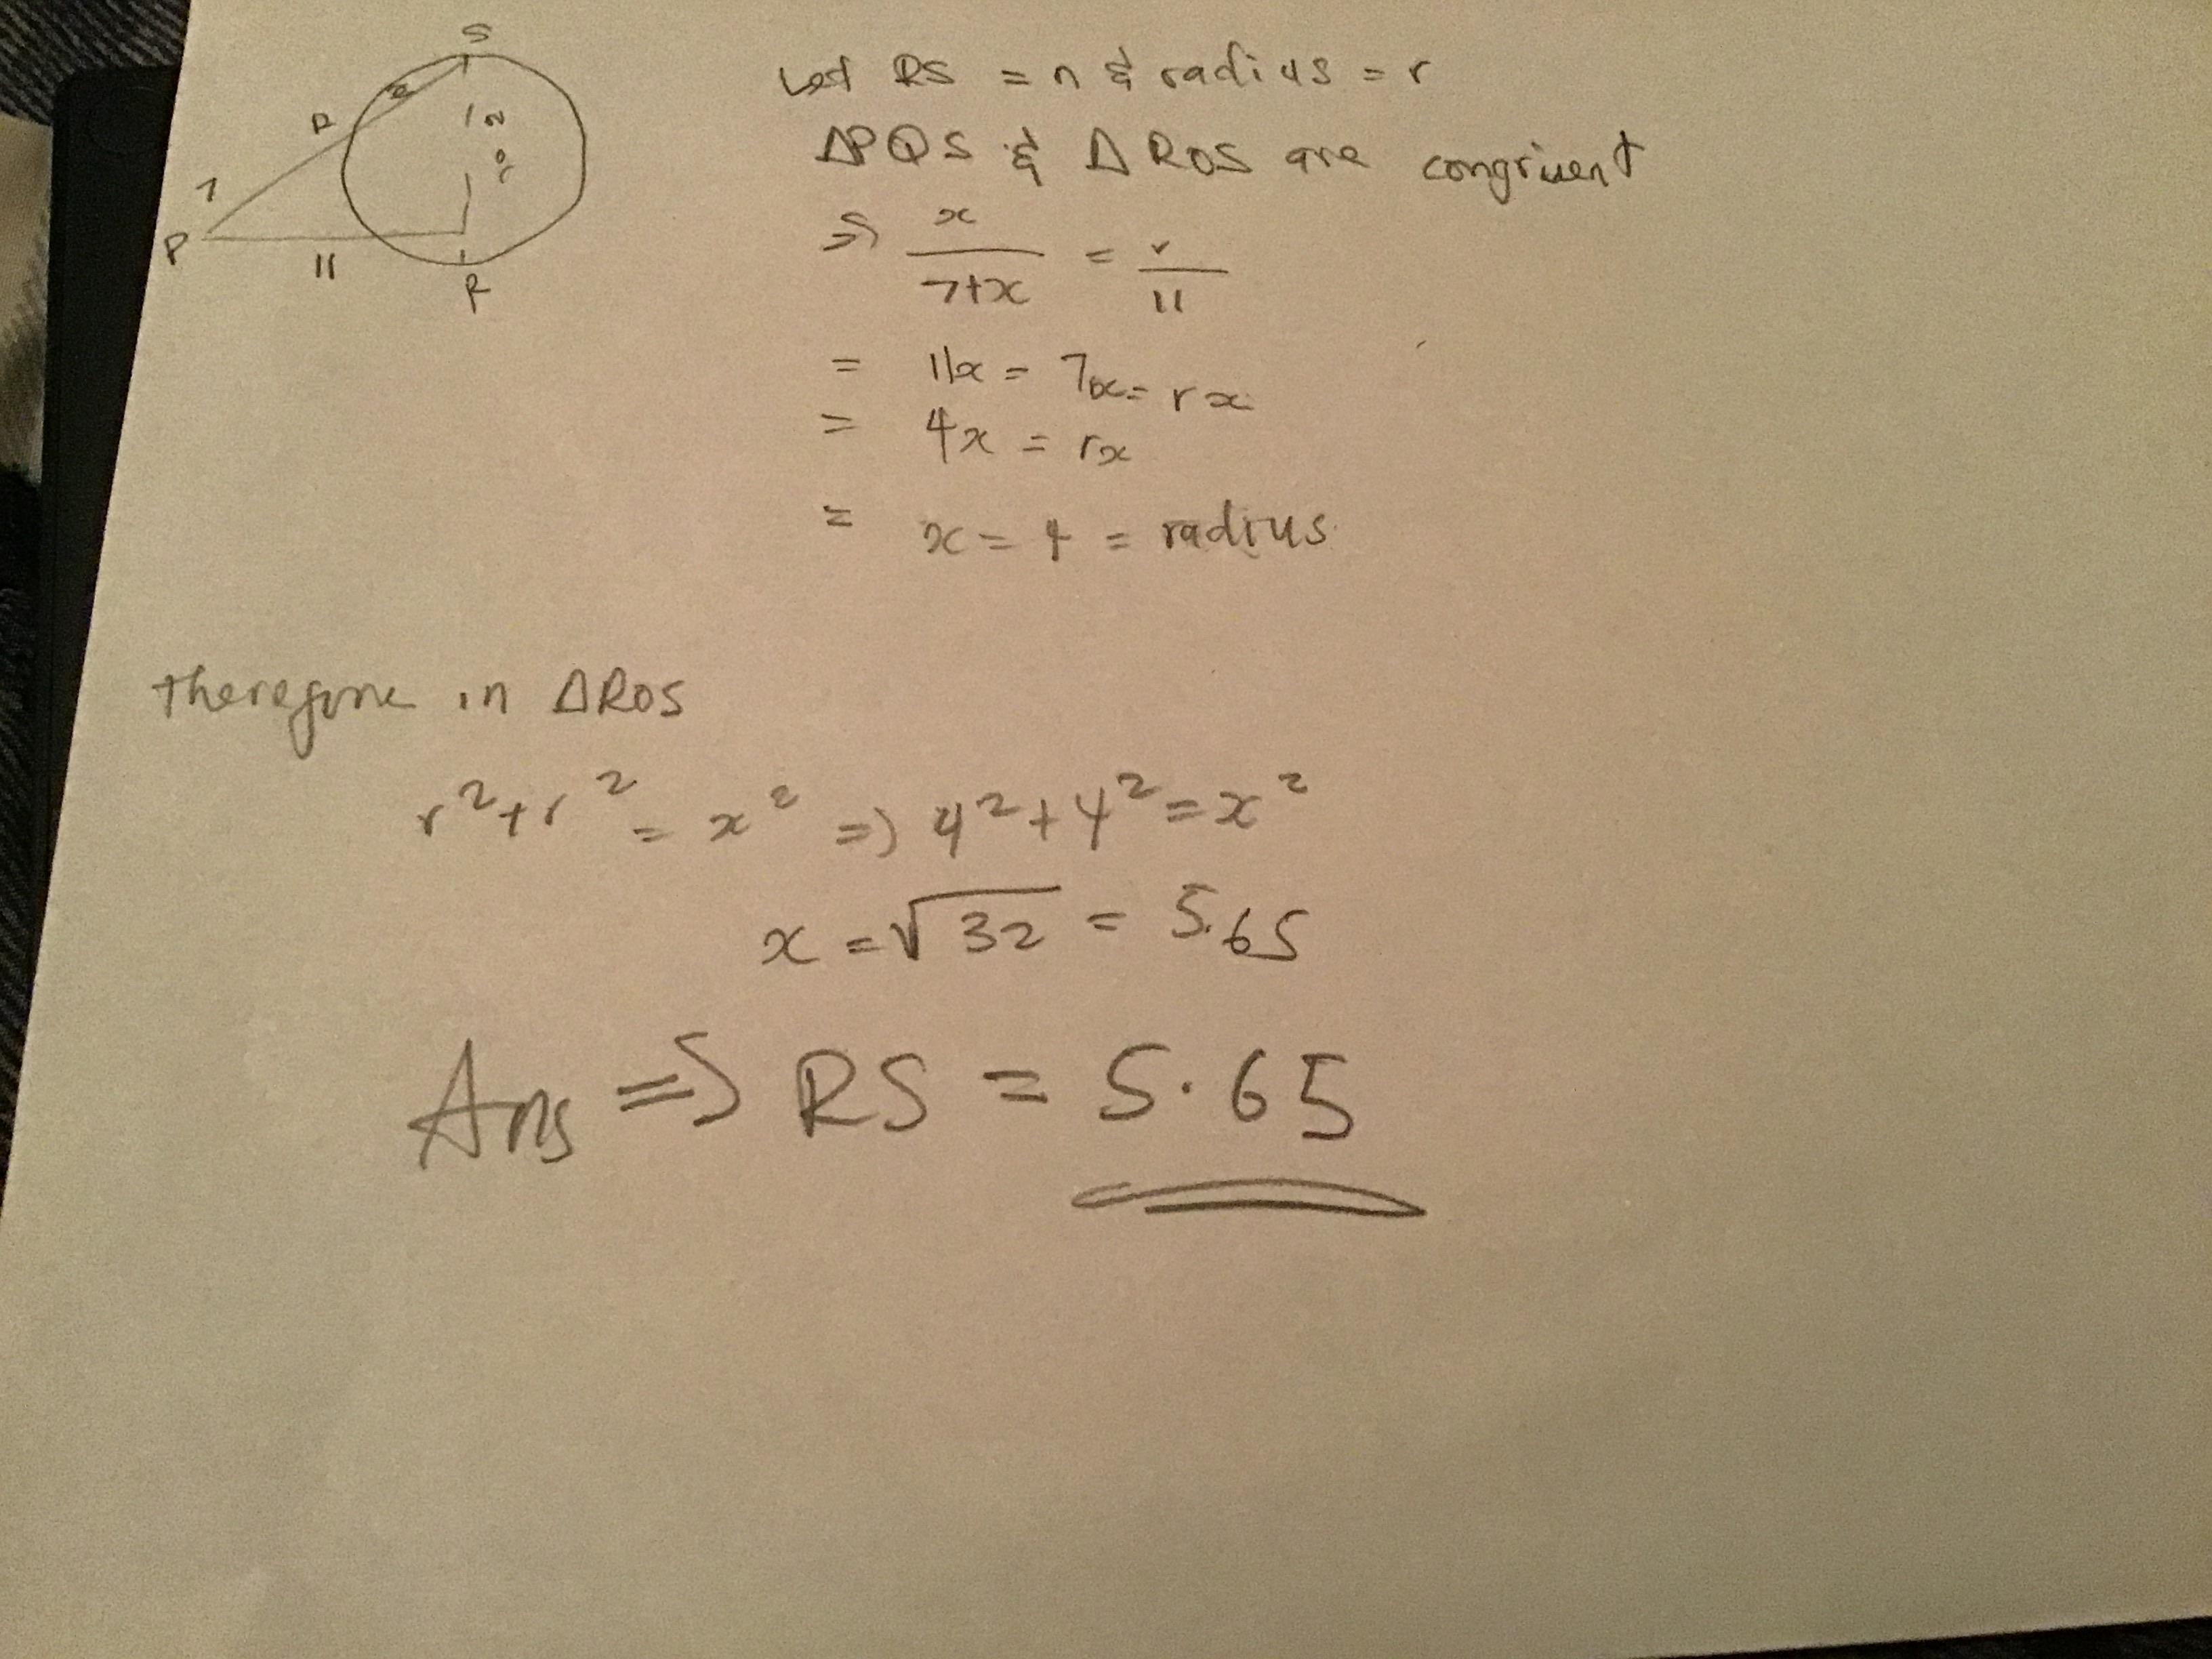 S
R
7
P
11
R
r
Let RS = n & radius = r
ΔPQS & ΔROS are congriuent
⇒ x / 7+x = r / 11
= 11x = 7x = rx
= 4x = rx
= x = 4 = radius
therefore in ΔROS
r² + r² = x² ⇒ 4² + 4² = x²
x = √32 = 5.65
Ans ⇒ RS = 5.65